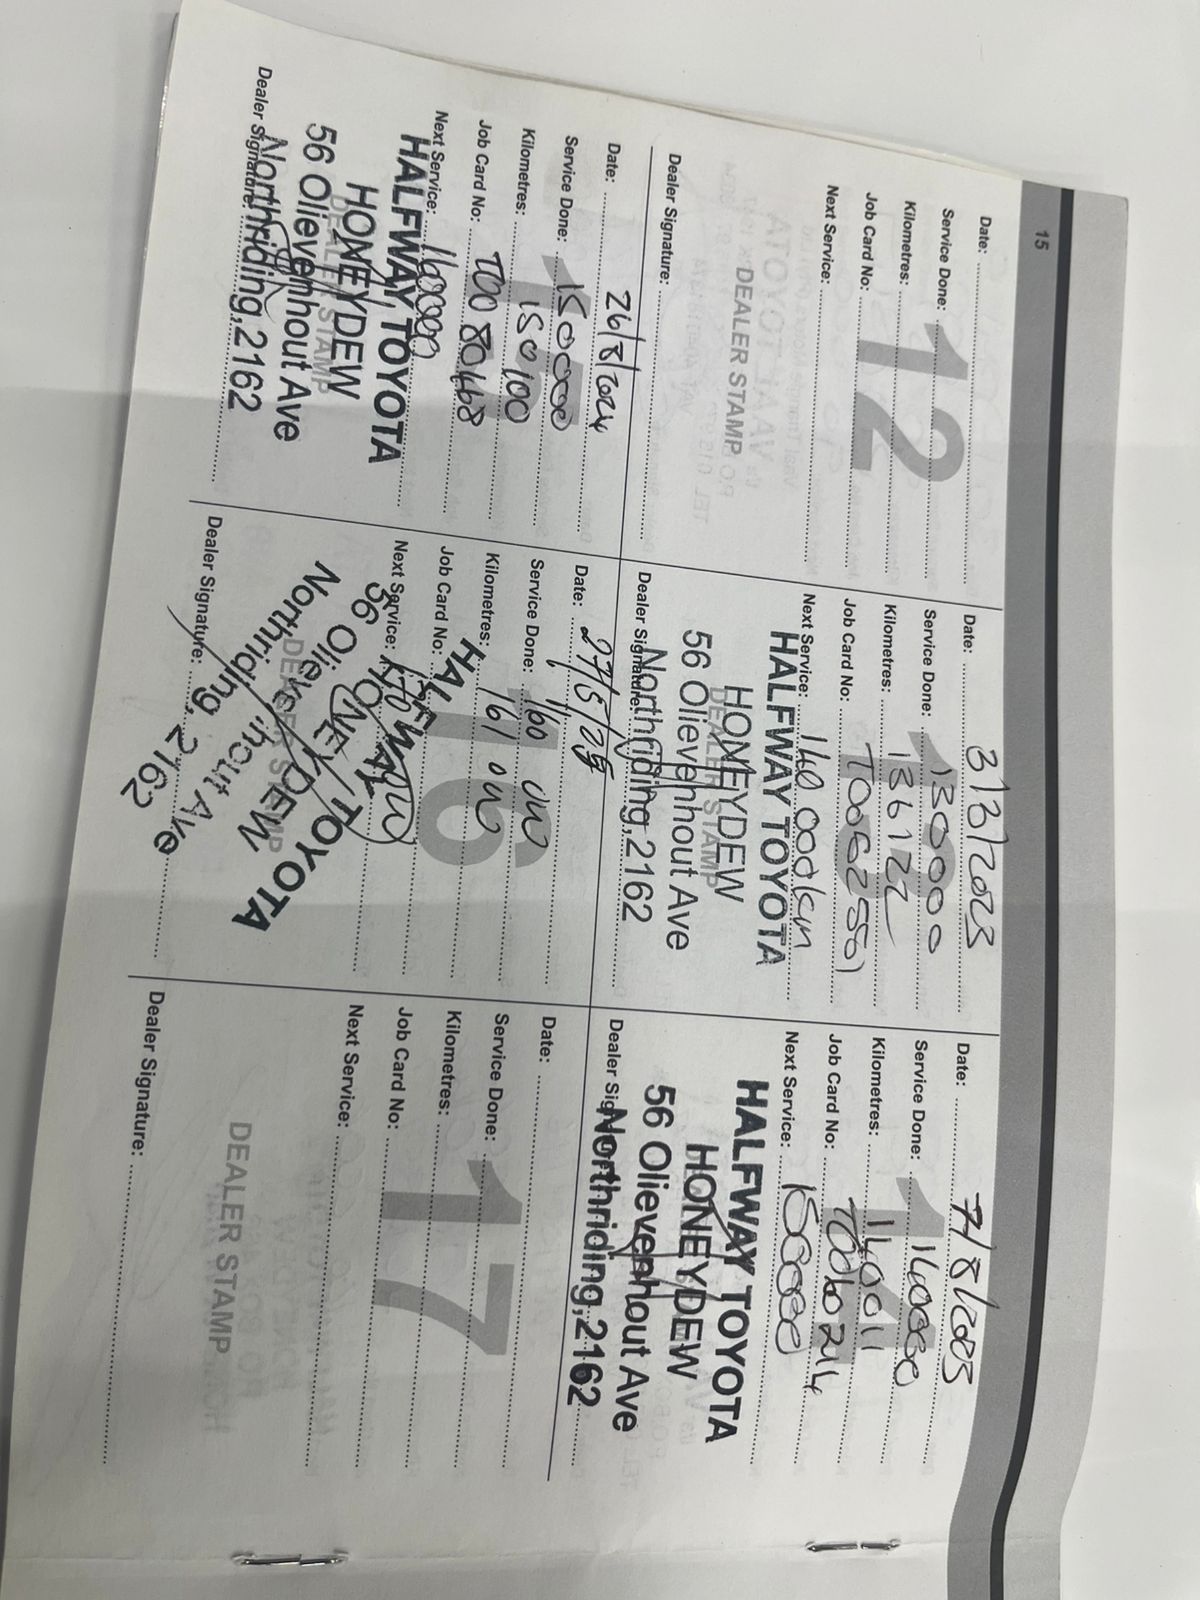 15
Date:
Service Done:
Kilometres:
Job Card No:
Next Service:
12
DEALER STAMP
Dealer Signature:
Date: 3/3/2023
Service Done: 130000
Kilometres: 136122
Job Card No:
Next Service: 140 000km
HALFWAY TOYOTA
HONEYDEW
DEALER STAMP
56 Olievenhout Ave
Northriding,2162
Dealer Signature:
Date: 7/8/2023
Service Done: 140000
Kilometres: 140011
Job Card No: T0060214
Next Service: 150000
14
HALFWAY TOYOTA
HONEYDEW
56 Olievenhout Ave
Northriding,2162
Date: 26/8/2024
Service Done: 150000
Kilometres: 150100
Job Card No: T0080468
Next Service: 160000
HALFWAY TOYOTA
HONEYDEW
DEALER STAMP
56 Olievenhout Ave
Northriding,2162
Dealer Signature:
Date: 27/5/25
Service Done: 160 000
Kilometres: 161 000
Job Card No:
Next Service:
16
HALFWAY TOYOTA
HONEYDEW
56 Olievenhout Ave
Northriding, 2162
DEALER STAMP
Dealer Signature:
Date:
Service Done:
Kilometres:
Job Card No:
Next Service:
17
DEALER STAMP
Dealer Signature: